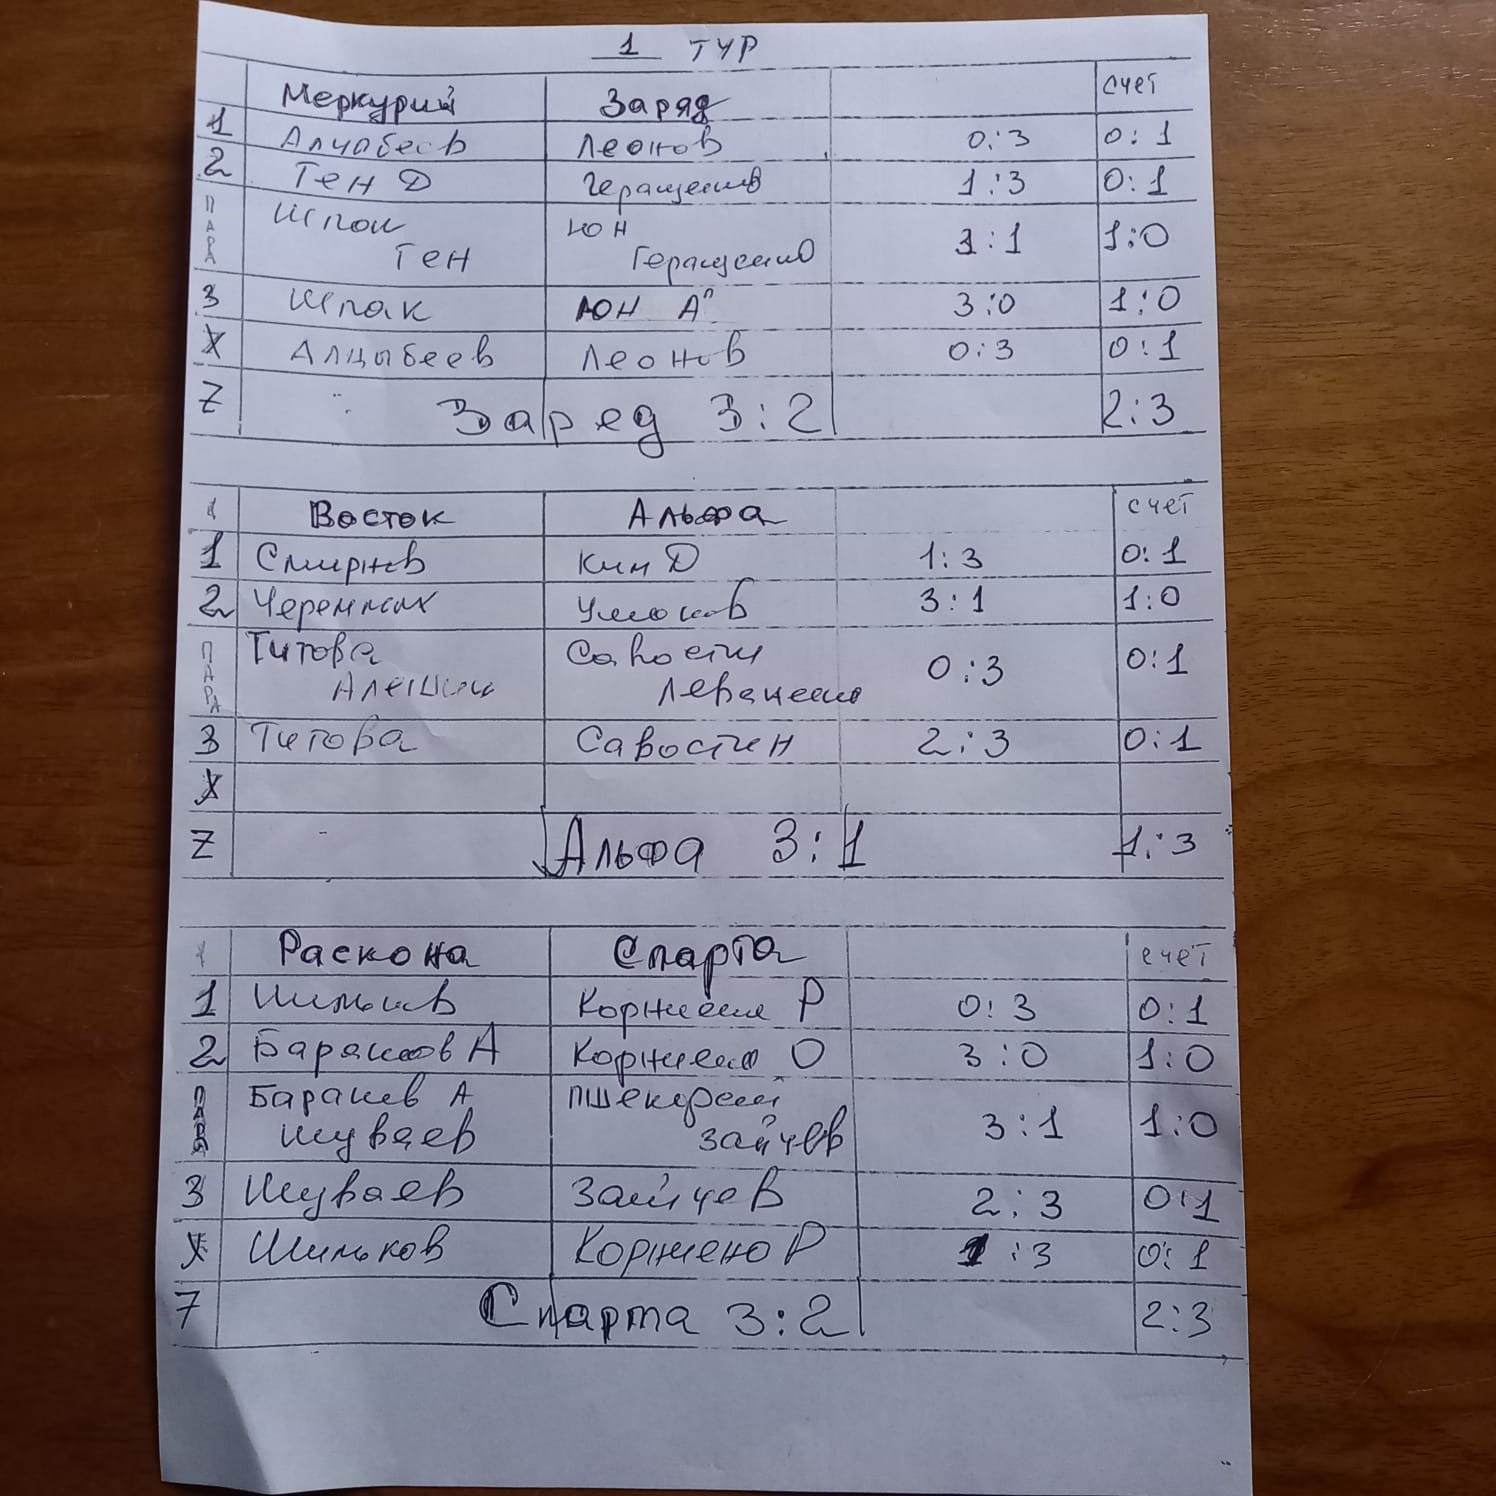 1 ТУР
Меркурий Заряд счет
1 Алчабеев Леонов 0:3 0:1
2 Тен Д Геращенко 1:3 0:1
ПАРА Шпак Юн 3:1 1:0
Тен Геращенко
3 Шпак Юн А 3:0 1:0
X Алцыбеев Леонов 0:3 0:1
Z Заряд 3:2 2:3
Восток Альфа счет
1 Смирнов Ким Д 1:3 0:1
2 Черемных 3:1 1:0
ПАРА Титова Савостин 0:3 0:1
Алешин Леваненко
3 Титова Савостин 2:3 0:1
X
Z Альфа 3:1 1:3
Раскона Спарта счет
1 Шильков Корниенко Р 0:3 0:1
2 Баранов А Корниенко О 3:0 1:0
ПАРА Баранов А 3:1 1:0
Шуваев Зайцев
3 Шуваев Зайцев 2:3 0:1
X Шильков Корниенко Р 1:3 0:1
Z Спарта 3:2 2:3